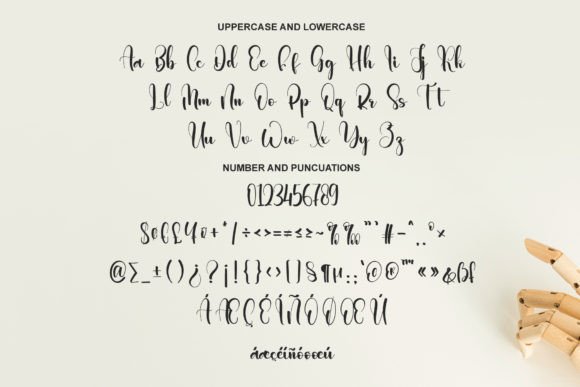 UPPERCASE AND LOWERCASE
Aa Bb Cc Dd Ee Ff Gg Hh Ii Jj Kk
Ll Mm Nn Oo Pp Qq Rr Ss Tt
Uu Vv Ww Xx Yy Zz
NUMBER AND PUNCUATIONS
0123456789
+ * / ÷ < > = ≤ ≥ ~ % ‰ # -
@ ∑ _ ± ( ) ¿ ? ¡ ! { } ‹ › [ ] § ¶ µ © ® ™ « » &
Á Æ Ç É Í Ñ Ó Ø Œ Ú
áæçéíñóøœú